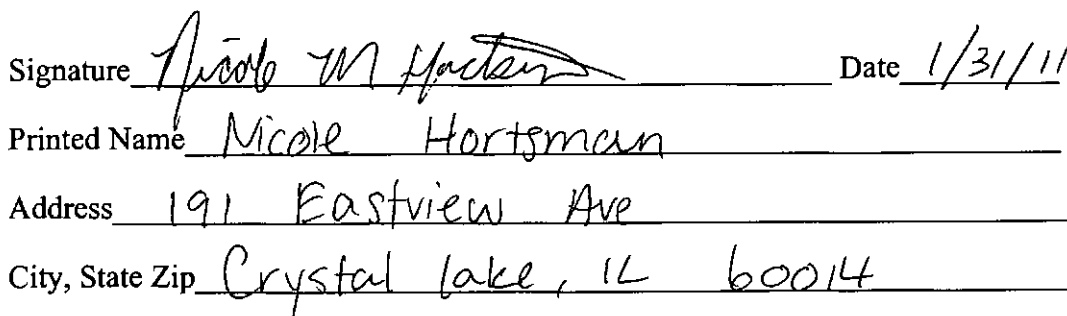 Signature Nicole M Date 1/31/11
Printed Name Nicole Hortsman
Address 191 Eastview Ave
City, State Zip Crystal lake, IL 60014